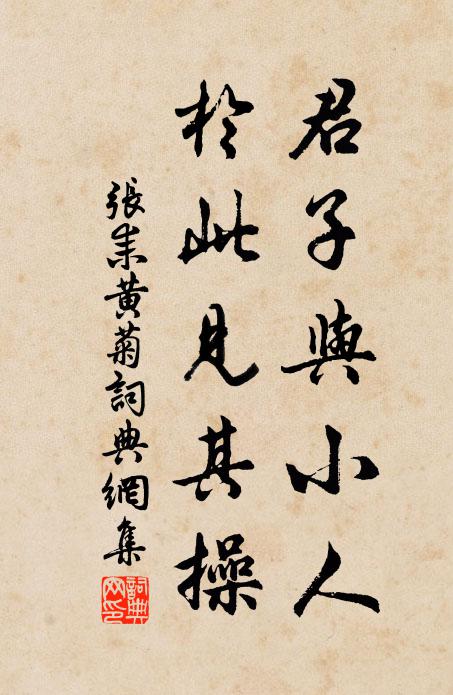 君子與小人
於此見其操
張耒黃菊詞典網集
詞典
网印